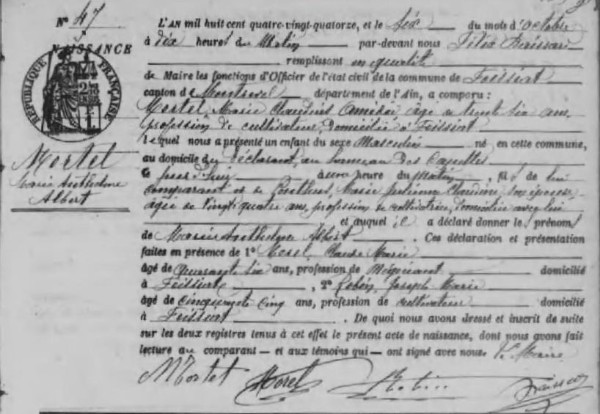 N° 47
NAISSANCE
RÉPUBLIQUE FRANÇAISE
Mortet
Marie
Albert
L'AN mil huit cent quatre-vingt-quatorze, et le six du mois d'octobre
à dix heures du Matin par-devant nous Félix
remplissant en qualité
de Maire les fonctions d'Officier de l'état civil de la commune de Foissiat
canton de Montrevel département de l'Ain, a comparu :
Mortet, Marie Amédée âgé de trente six ans
profession de cultivateur, domicilié à Foissiat
lequel nous a présenté un enfant du sexe Masculin né, en cette commune,
au domicile du déclarant, au hameau des
heure du Matin, fils de lui
comparant et de Marie son épouse
âgée de vingt quatre ans, profession de cultivatrice, domiciliée avec lui
et auquel il a déclaré donner le prénom
de Marie Albert. Ces déclaration et présentation
faites en présence de 1° Claude Marie
âgé de quarante six ans, profession de domicilié
à Foissiat, 2° Joseph Marie
âgé de cinquante cinq ans, profession de cultivateur domicilié
à Foissiat. De quoi nous avons dressé et inscrit de suite
sur les deux registres tenus à cet effet le présent acte de naissance, dont nous avons fait
lecture au comparant — et aux témoins qui — ont signé avec nous, le Maire
Mortet Morel